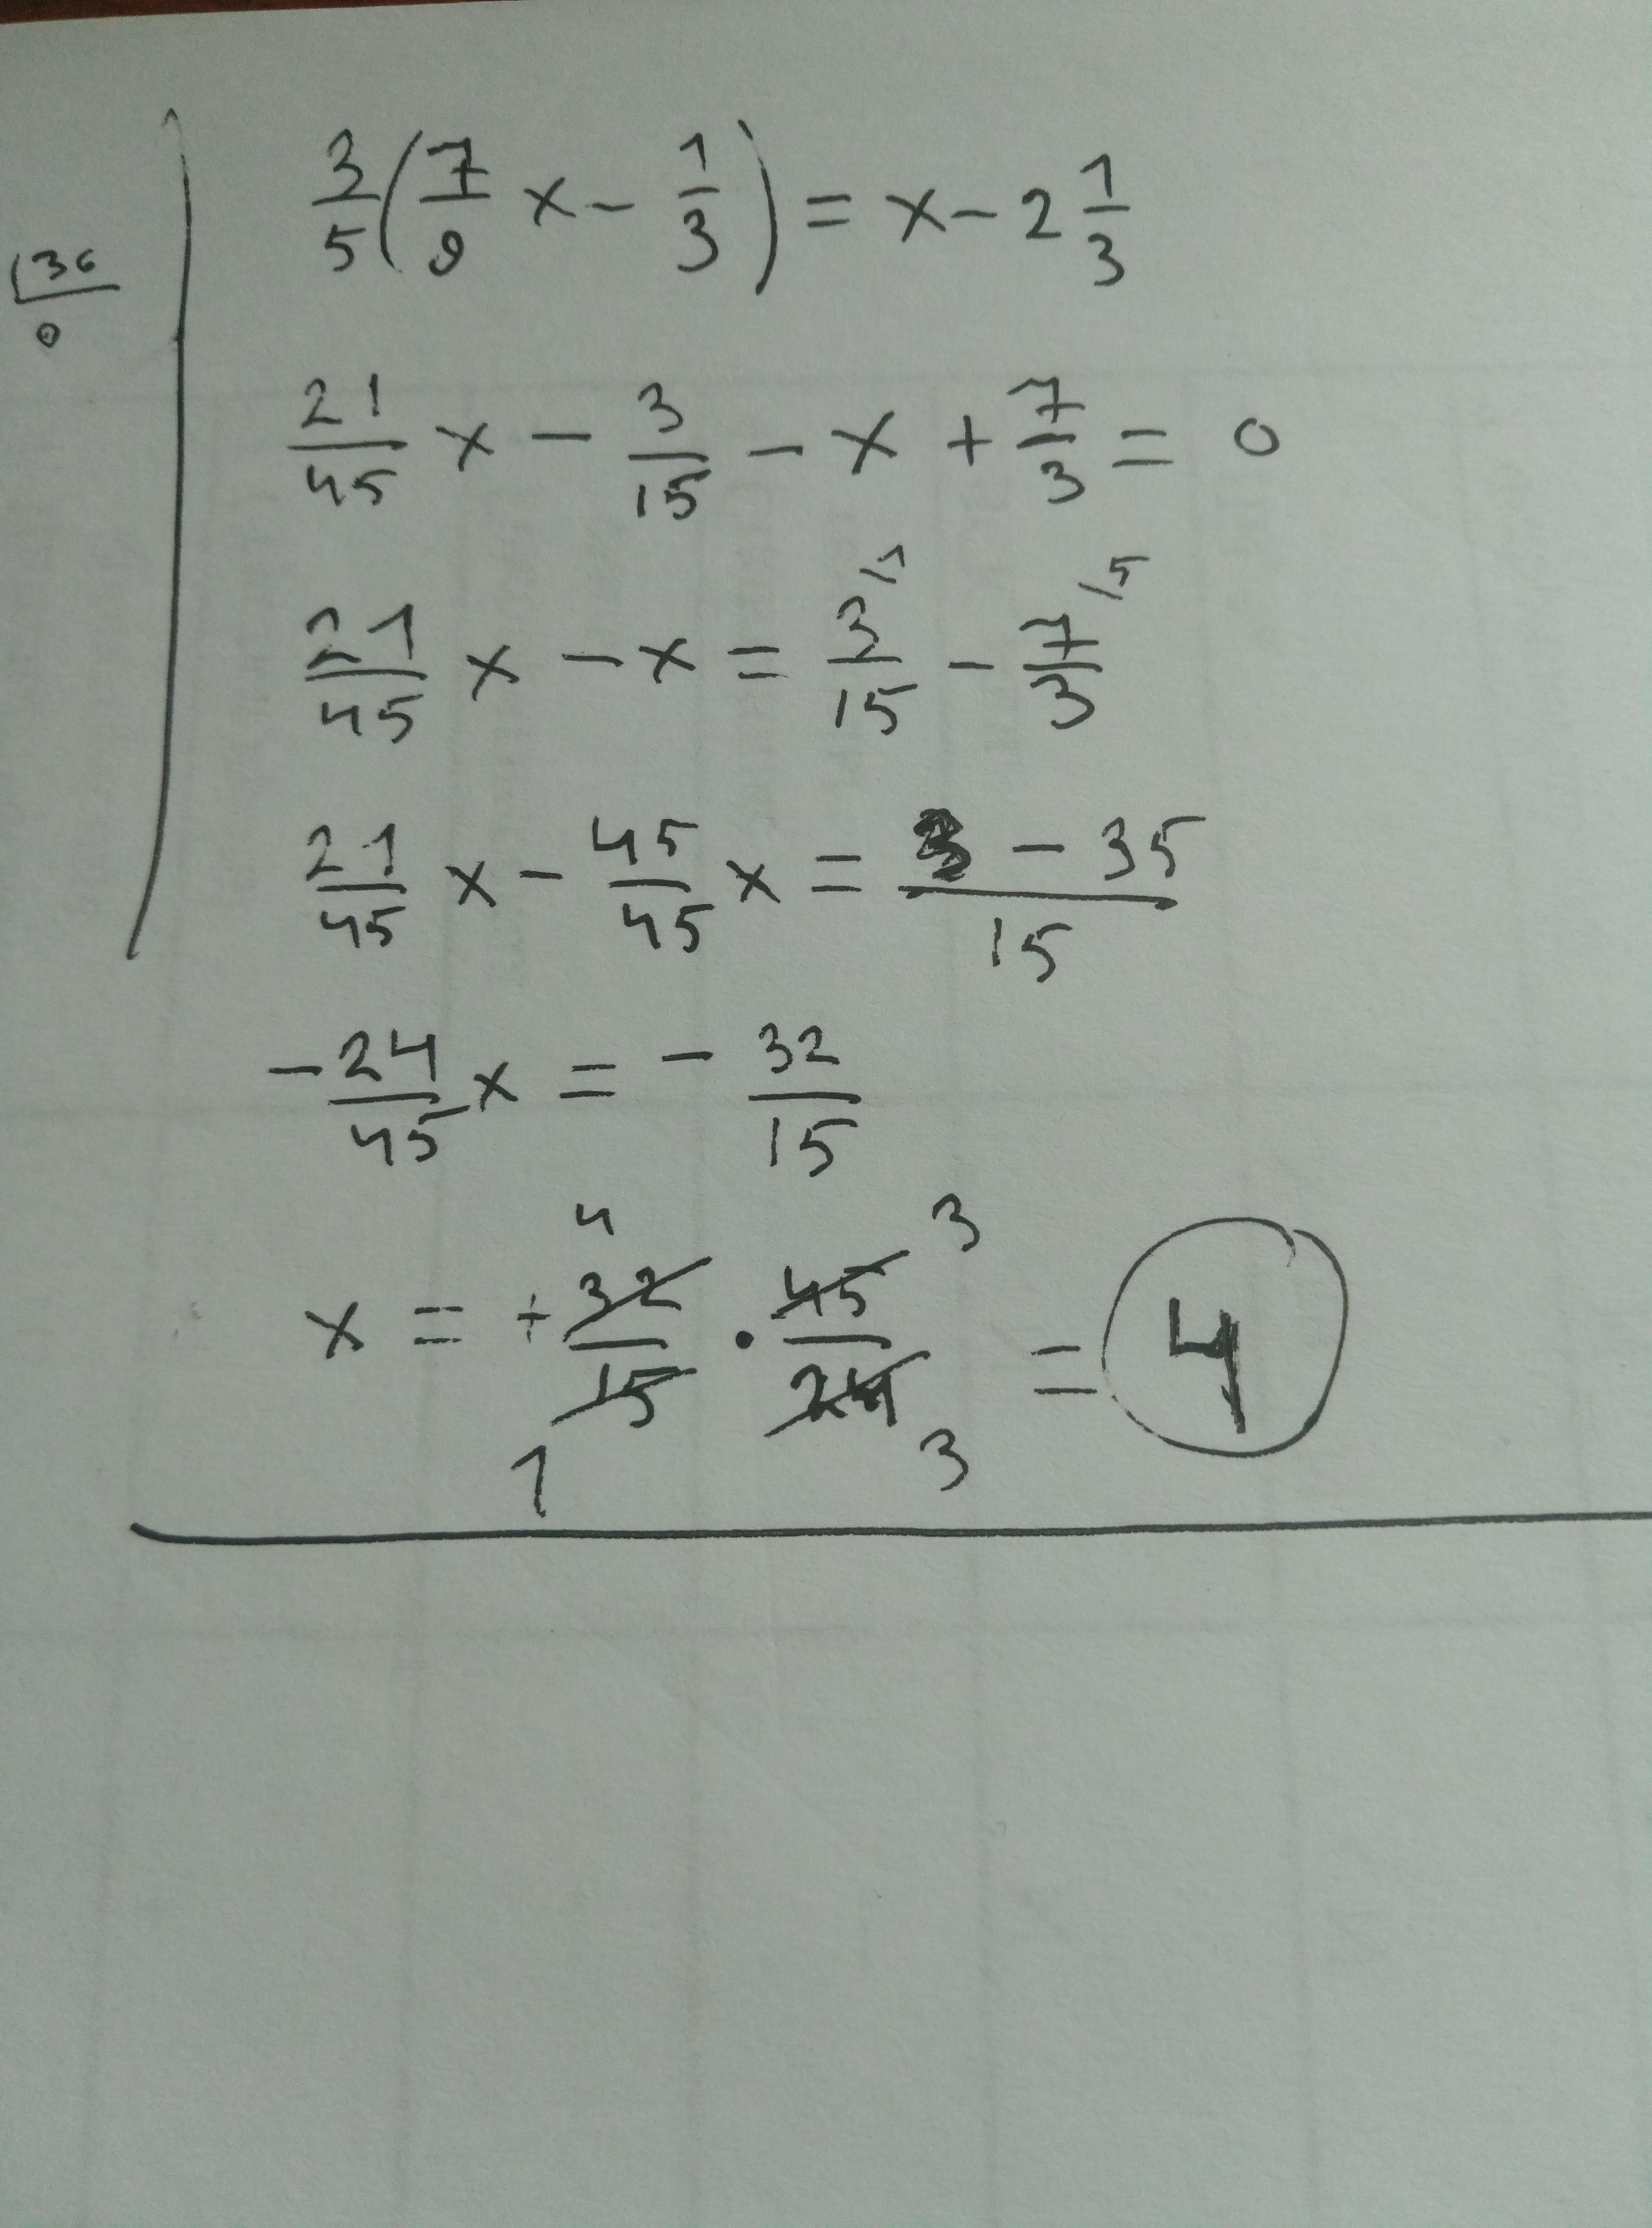 3/5 (7/9 x - 1/3) = x - 2 1/3
36
0
21/45 x - 3/15 - x + 7/3 = 0
21/45 x - x = 3/15 \1 - 7/3 \5
21/45 x - 45/45 x = (3 - 35)/15
-24/45 x = - 32/15
4 3
x = + 32/15 · 45/24 = 4
1 3